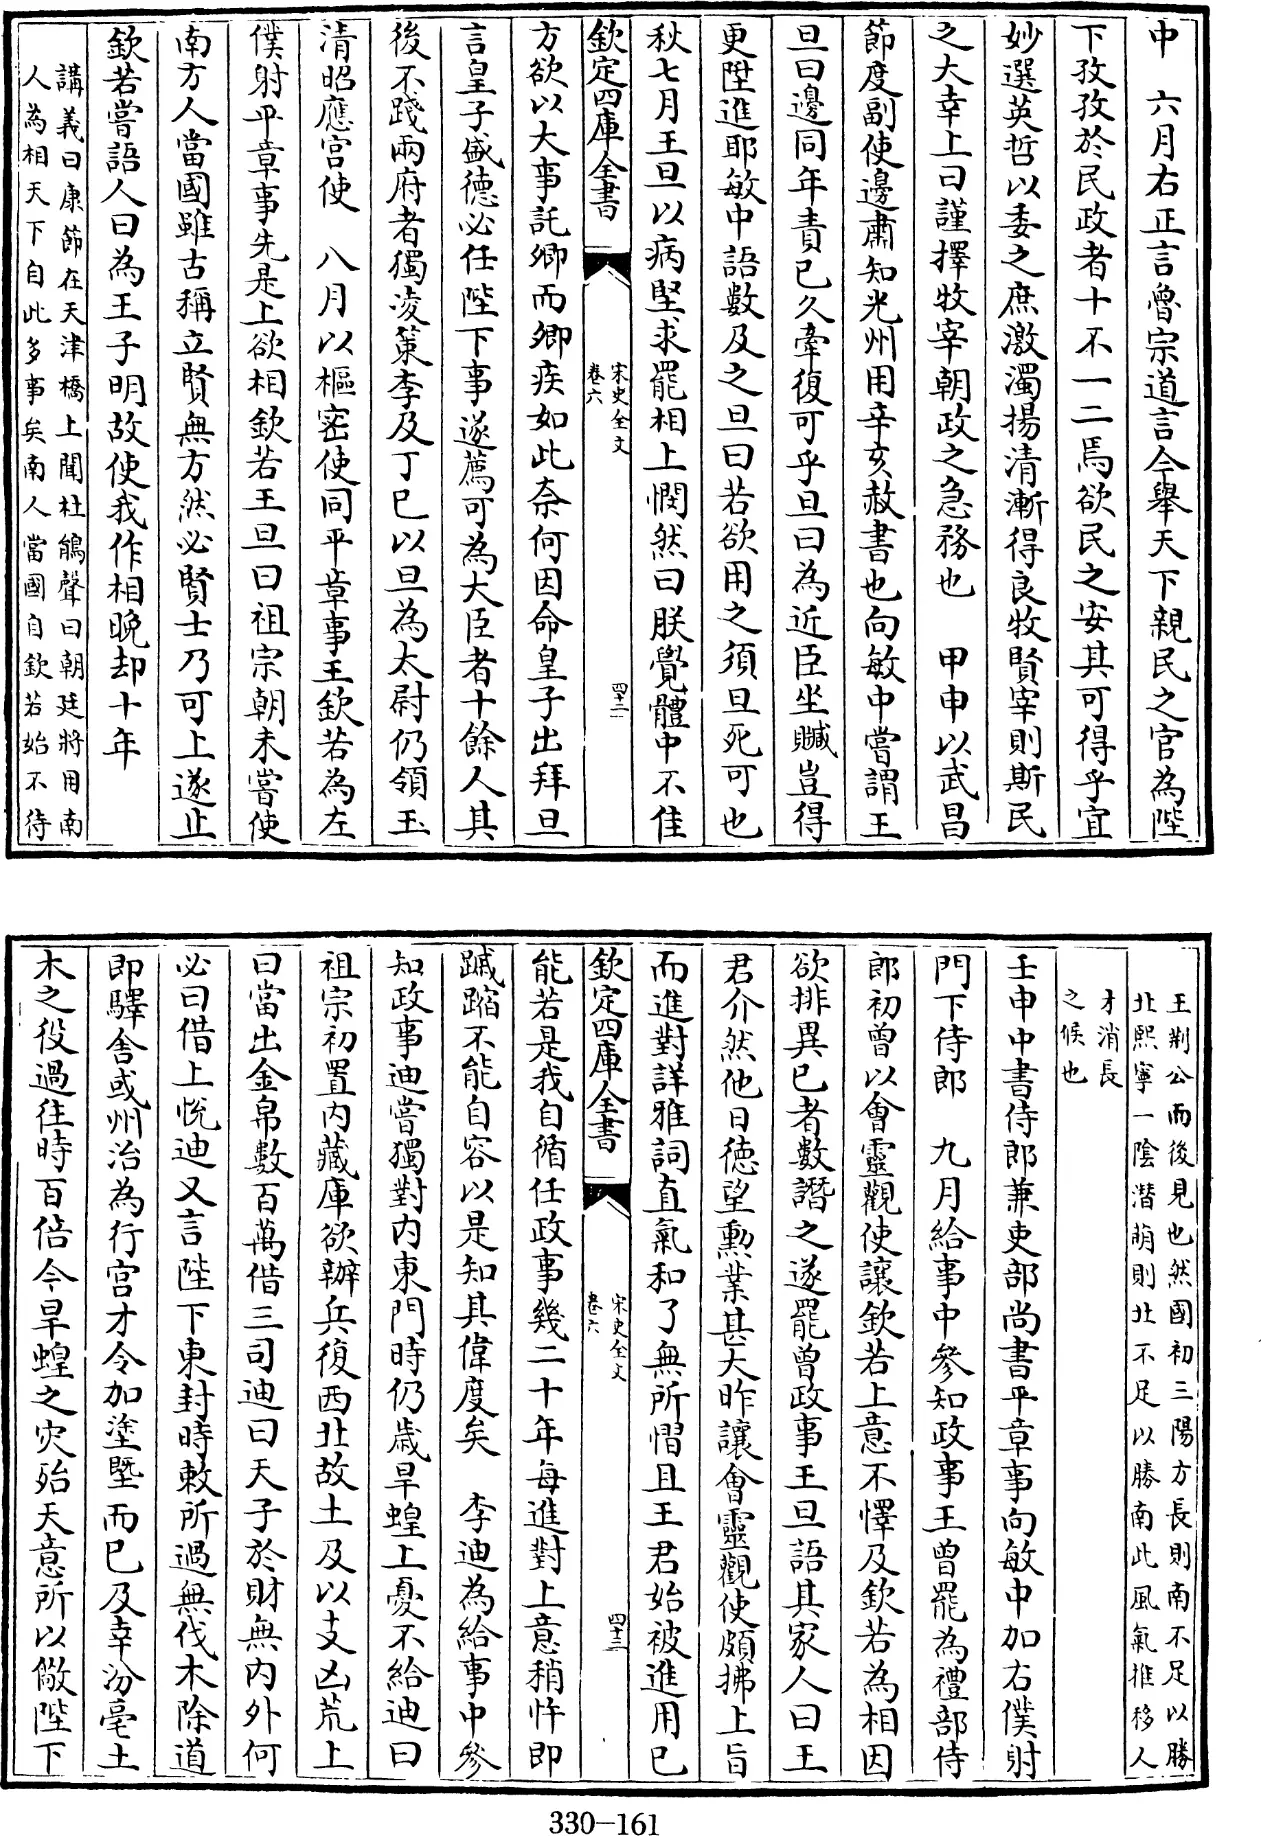 中　六月右正言魯宗道言今舉天下親民之官為陛
下孜孜於民政者十不一二焉欲民之安其可得乎宜
妙選英哲以委之庶激濁揚清漸得良牧賢宰則斯民
之大幸上曰謹擇牧宰朝政之急務也　甲申以武昌
節度副使邊肅知光州用辛亥赦書也向敏中嘗謂王
旦曰邊同年責已久牽復可乎旦曰為近臣坐贓豈得
更陞進耶敏中語數及之旦曰若欲用之須旦死可也
秋七月王旦以病堅求罷相上憫然曰朕覺體中不佳
欽定四庫全書
宋史全文
卷六
四十二
方欲以大事託卿而卿疾如此奈何因命皇子出拜旦
言皇子盛德必任陛下事遂薦可為大臣者十餘人其
後不踐兩府者獨凌策李及丁巳以旦為太尉仍領玉
清昭應宮使　八月以樞密使同平章事王欽若為左
僕射平章事先是上欲相欽若王旦曰祖宗朝未嘗使
南方人當國雖古稱立賢無方然必賢士乃可上遂止
欽若嘗語人曰為王子明故使我作相晚却十年
講義曰康節在天津橋上聞杜鵑聲曰朝廷將用南
人為相天下自此多事矣南人當國自欽若始不待
王荆公而後見也然國初三陽方長則南不足以勝
北熙寧一陰潛萌則北不足以勝南此風氣推移人
才消長
之候也
壬申中書侍郎兼吏部尚書平章事向敏中加右僕射
門下侍郎　九月給事中參知政事王曾罷為禮部侍
郎初曾以會靈觀使讓欽若上意不懌及欽若為相因
欲排異已者數譖之遂罷曾政事王旦語其家人曰王
君介然他日德望勲業甚大昨讓會靈觀使頗拂上旨
而進對詳雅詞直氣和了無所慴且王君始被進用已
欽定四庫全書
宋史全文
卷六
四十三
能若是我自循任政事幾二十年每進對上意稍忤即
蹴踖不能自容以是知其偉度矣　李迪為給事中參
知政事迪嘗獨對内東門時仍歲旱蝗上憂不給迪曰
祖宗初置内藏庫欲辦兵復西北故土及以支凶荒上
曰當出金帛數百萬借三司迪曰天子於財無内外何
必曰借上悅迪又言陛下東封時敕所過無伐木除道
即驛舍或州治為行宮才令加塗塈而已及幸汾亳土
木之役過往時百倍今旱蝗之災殆天意所以儆陛下
330-161